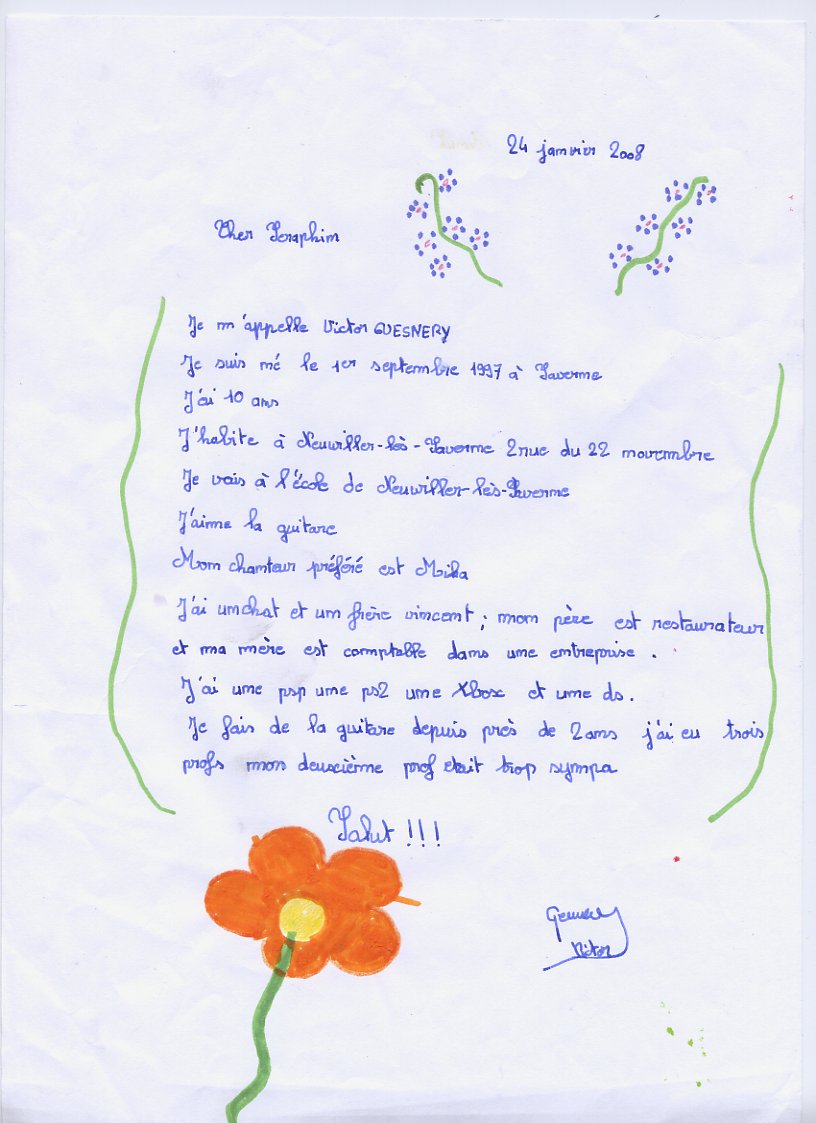 24 janvier 2008
Cher Seraphim
Je m'appelle Victor GUESNERY
Je suis né le 1er septembre 1997 à Saverne
J'ai 10 ans
J'habite à Neuwiller-lès-Saverne 2 rue du 22 novembre
Je vais à l'école de Neuwiller-lès-Saverne
J'aime la guitare
Mon chanteur préféré est Mika
J'ai un chat et un frère vincent ; mon père est restaurateur
et ma mère est comptable dans une entreprise .
J'ai une psp une ps2 une Xbox et une ds .
Je fais de la guitare depuis près de 2 ans j'ai eu trois
profs mon deuxième prof etait trop sympa
Salut !!!
Victor